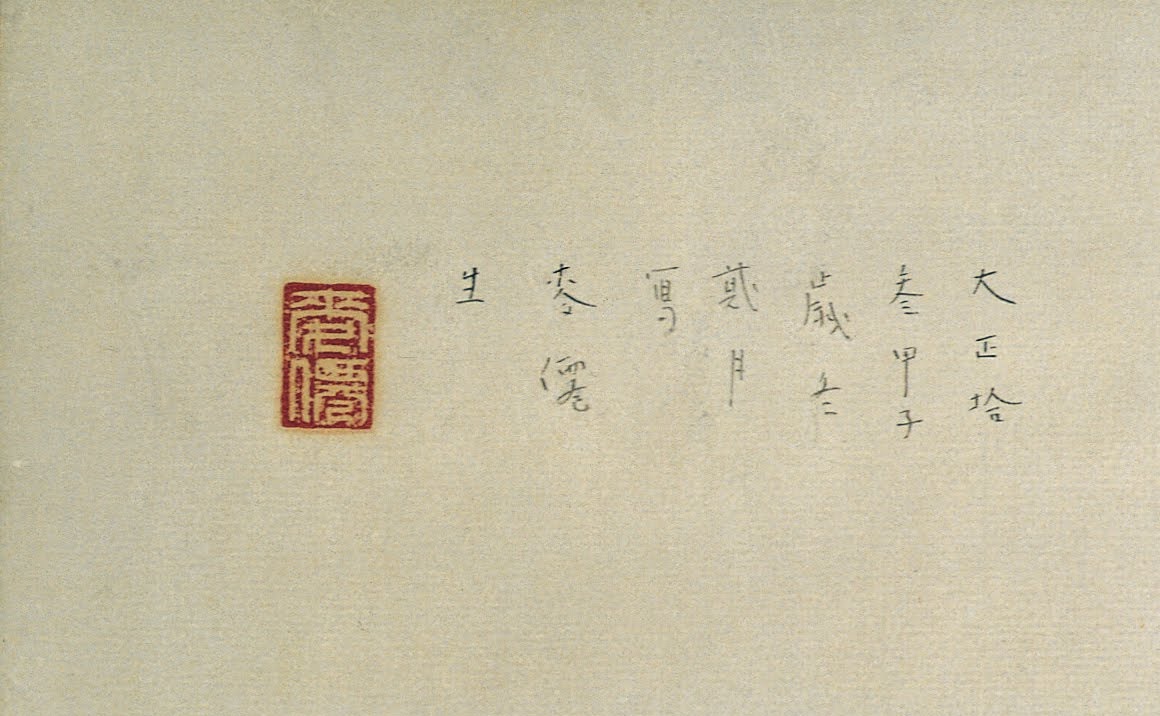 大正拾
叁甲子
歳冬
貳月
寫
麥僊
生
麥僊